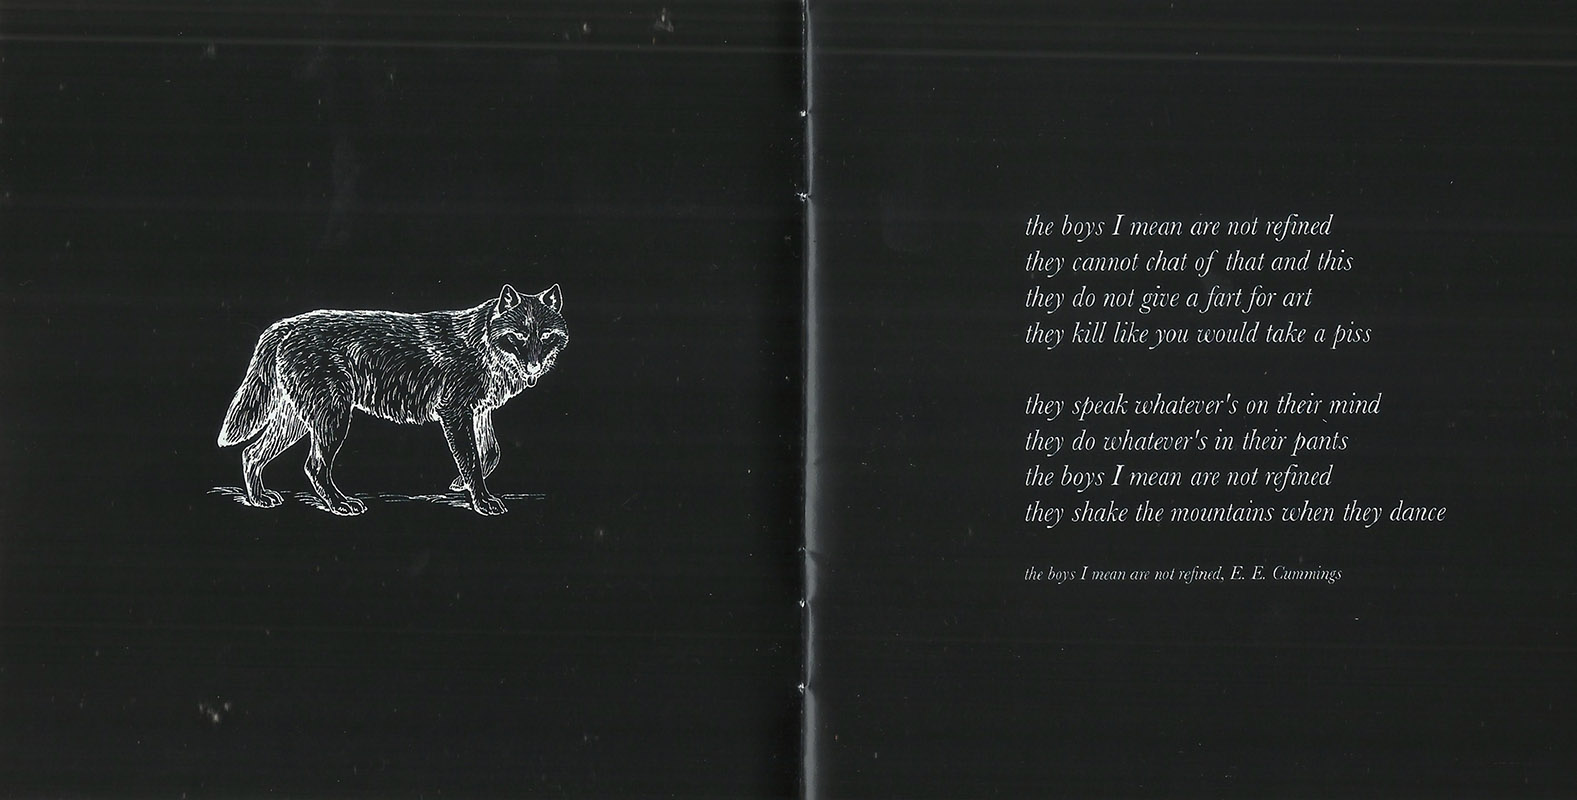 the boys I mean are not refined
they cannot chat of that and this
they do not give a fart for art
they kill like you would take a piss
they speak whatever's on their mind
they do whatever's in their pants
the boys I mean are not refined
they shake the mountains when they dance
the boys I mean are not refined, E. E. Cummings